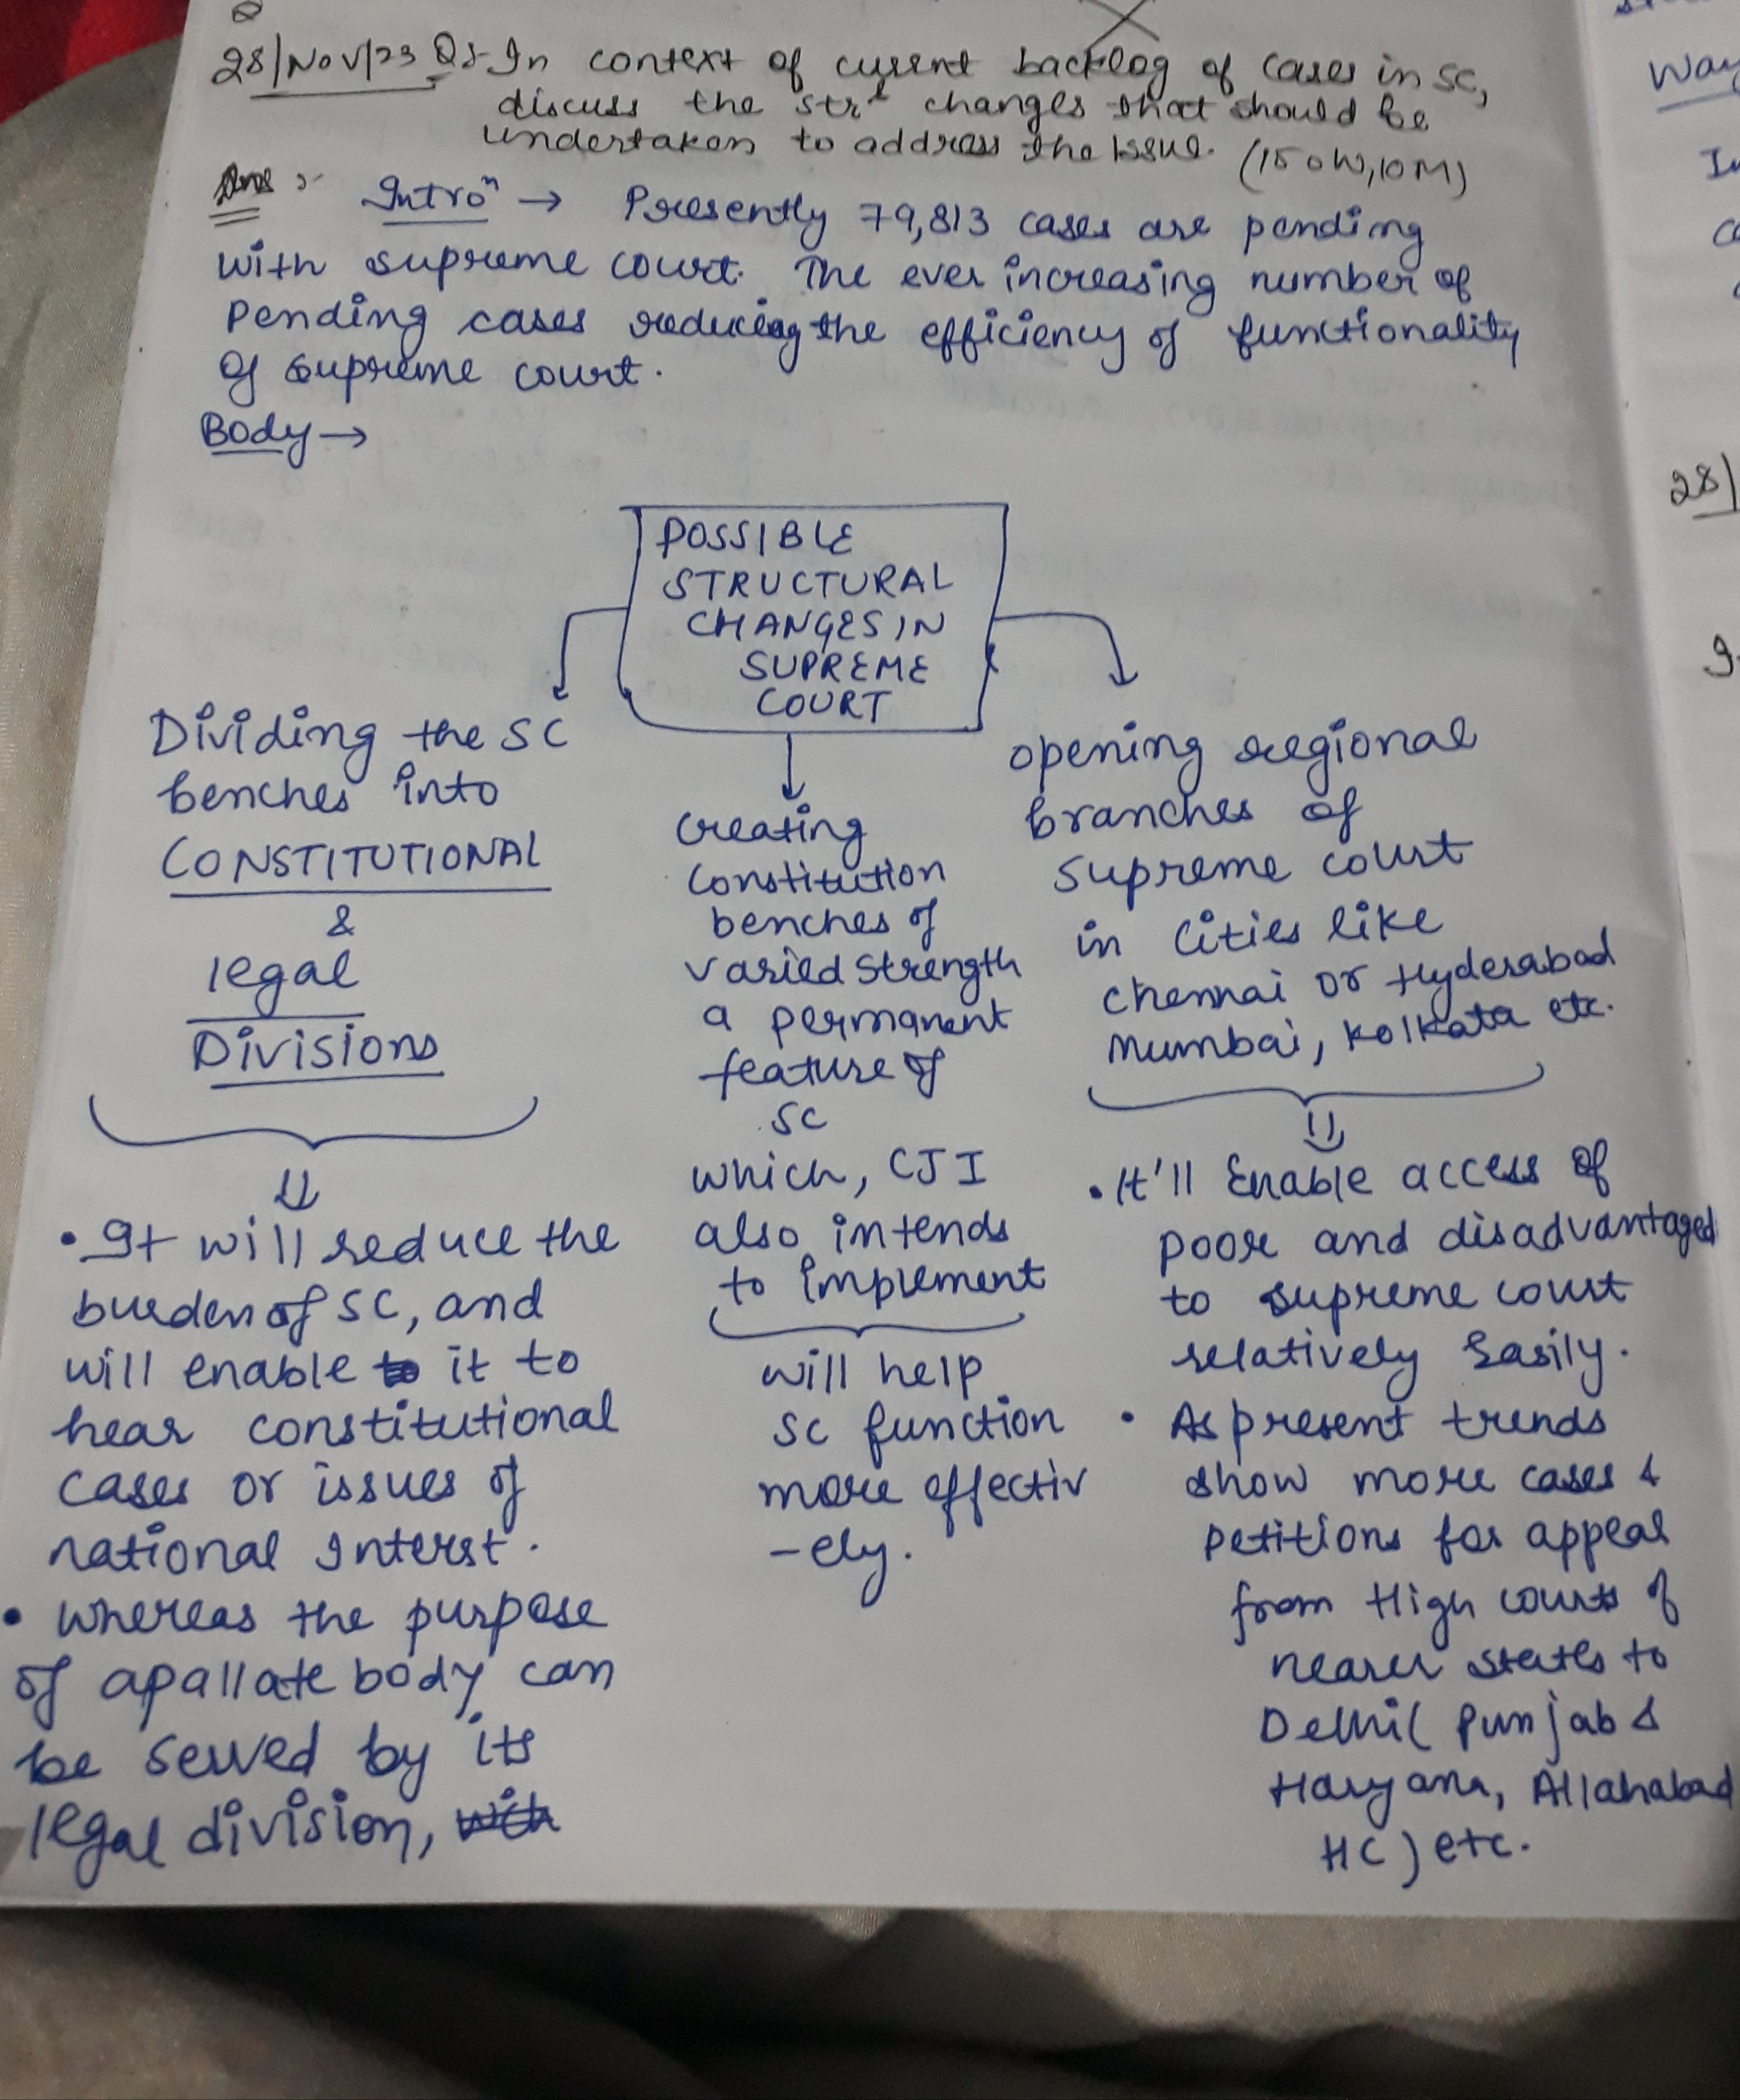 28/Nov/23 Q:- In context of current backlog of cases in SC,
discuss the strl changes that should be
undertaken to address the issue. (150W,10M)
Ans :- Intron → Presently 79,813 cases are pending
with supreme court. The ever increasing number of
pending cases reducing the efficiency of functionality
of supreme court.
Body →
POSSIBLE
STRUCTURAL
CHANGES IN
SUPREME
COURT
Dividing the SC
benches into
CONSTITUTIONAL
&
legal
Divisions
• It will reduce the
burden of SC, and
will enable it to
hear constitutional
cases or issues of
national Interst.
• whereas the purpose
of apallate body can
be served by its
legal division, with
creating
constitution
benches of
varied strength
a permanent
feature of
SC
which, CJI
also intends
to implement
will help
SC function
more effectiv
-ely.
opening regional
branches of
supreme court
in cities like
Chennai or Hyderabad
Mumbai, Kolkata etc.
• It'll Enable access of
poor and disadvantaged
to supreme court
relatively Easily.
• As present trends
show more cases &
petitions for appeal
from High courts of
nearer states to
Delhi( Punjab &
Haryana, Allahabad
HC) etc.
Way
28/